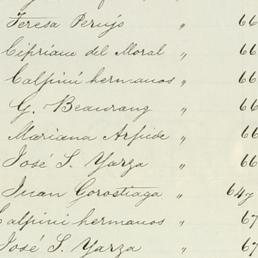 Teresa " 66
Cipriano del Moral " 66
Calpini hermanos " 66
G. Beaurang " 66
Mariana " 66
José S. Yarza " 66
Juan Gorostiaga " 64
Calpini hermanos " 67
José S. Yarza " 67